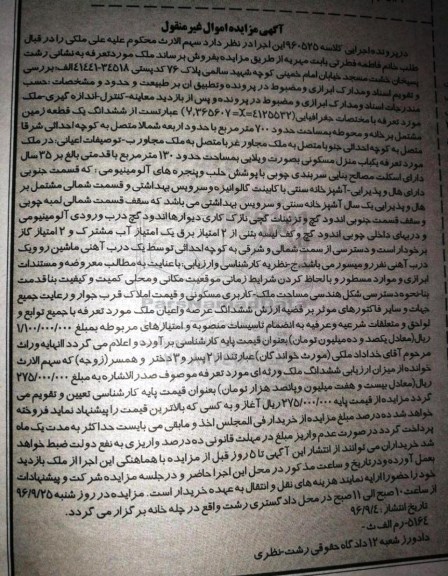 آگهی مزایده اموال غیر منقول
در پرونده اجرایی کلاسه ۹۶۰۵۲۵ این اجرا در نظر دارد سهم الارث محکوم علیه علی ملکی را در قبال
طلب خانم فاطمه فطرتی بابت مهریه از طریق مزایده بفروش برساند ملک مورد تعرفه به نشانی رشت
پسیخان خشت مسجد خیابان امام خمینی کوچه شهید سالمی پلاک ۷۶ کدپستی ۳۴۵۱۸-۴۱۴۴۱ الف: بررسی
و تقویم اسناد و مدارک ابرازی و مضبوط در پرونده و تطبیق آن بر طبیعت و حدود و مشخصات :حسب
مندرجات اسناد و مدارک ابرازی و مضبوط در پرونده و پس از بازدید معاینه-کنترل-اندازه گیری-ملک
مورد تعرفه با مختصات جغرافیایی (۴۱۲۵۵۳۲=X=۳۶۵۶۰۷،Y) عبارتست از ششدانگ یک قطعه زمین
مشتمل بر خانه و محوطه بمساحت حدود ۷۰۰ متر مربع با حدود اربعه شمالا متصل به کوچه احداثی شرقا
متصل به کوچه احداثی جنوبا متصل به ملک مجاور غربا متصل به ملک مجاور ب-توصیفات اعیانی: در ملک
مورد تعرفه یکباب منزل مسکونی بصورت ویلایی بمساحت حدود ۱۳۰ متر مربع با قدمتی بالغ بر ۳۵ سال
دارای اسکلت مصالح بنایی سربندی چوبی با پوشش حلب و پنجره های آلومینیومی : که قسمت جنوبی
دارای هال و پذیرایی-آشپزخانه سنتی با کابینت گالوانیزه و سرویس بهداشتی و قسمت شمالی مشتمل بر
هال و پذیرایی یک سال آشپزخانه سنتی و سرویس بهداشتی می باشد که سقف قسمت شمالی لمبه چوبی
و سقف قسمت جنوبی اندود گچ و تزئینات گچی نازک کاری دیوارها اندود گچ درب ورودی آلومینیومی
و دربهای داخلی چوبی اندود گچ و کف لیسه بتنی از ۲ امتیاز برق یک امتیاز آب مشترک و ۲ امتیاز گاز
برخوردار است و دسترسی از سمت شمالی و شرقی به کوچه احداثی توسط یک درب آهنی ماشین رو و یک
درب آهنی نفر رو میسور می باشد. ج-نظریه کارشناسی و ارزیابی: با عنایت به مطالب معروضه و مستندات
ابرازی و موارد مسطور و با لحاظ کردن شرایط زمانی موقعیت مکانی و محلی کمیت و کیفیت بنا قدمت
بنا نحوه دسترسی شکل هندسی مساحت ملک-کاربری مسکونی و قیمت املاک قرب جوار و رعایت جمیع
جهات و سایر فاکتورهای موثر بر قضیه ارزش ششدانگ عرصه و اعیان ملک مورد تعرفه با جمیع توابع و
لواحق و متعلقات شرعیه و عرفیه به انضمام تاسیسات منصوبه و امتیازهای مربوطه بمبلغ ۱/۱۰۰/۰۰۰/۰۰۰
ریال(معادل یکصد و ده میلیون تومان)بعنوان قیمت پایه کارشناسی برآورد و اعلام می گردد النهایه وراث
مرحوم آقای خداداد ملکی (مورث خواندگان)عبارتند از ۲ پسر و ۳ دختر و همسر(زوجه) که سهم الارث
خوانده از میزان ارزیابی ششدانگ ملک ورثه ای مورد تعرفه موصوف صدرالاشاره به مبلغ ۲۷۵/۰۰۰/۰۰۰
ریال(معادل بیست و هفت میلیون و پانصد هزار تومان) بعنوان قیمت پایه کارشناسی تعیین و تقویم می
گردد مزایده از قیمت پایه ۲۷۵/۰۰۰/۰۰۰ریال آغاز و به کسی که بالاترین قیمت را پیشنهاد نماید فروخته
خواهد شد ده درصد مبلغ مزایده از خریدار فی المجلس اخذ و مابقی می بایست حداکثر به مدت یک ماه
پرداخت گردد در صورت عدم واریز مبلغ در مهلت قانونی ده درصد واریزی به نفع دولت ضبط خواهد
شد خریداران می توانند از انتشار این آگهی تا ۵ روز قبل از مزایده با هماهنگی این اجرا از ملک بازدید
بعمل آورده و در تاریخ و ساعت مذکور در محل این اجرا حاضر و در جلسه مزایده شرکت و پیشنهادات
خود را حضورا ارایه نمایند هزینه های نقل و انتقال به عهده خریدار است. مزایده در روز شنبه ۹۶/۹/۲۵
از ساعت ۱۰ صبح الی ۱۱ صبح در محل دادگستری رشت واقع در چله خانه برگزار می گردد.
تاریخ انتشار :۹۶/۹/۴
۵۱۶۴-رم الف ث-
دادورز شعبه ۱۲ دادگاه حقوقی رشت-نظری